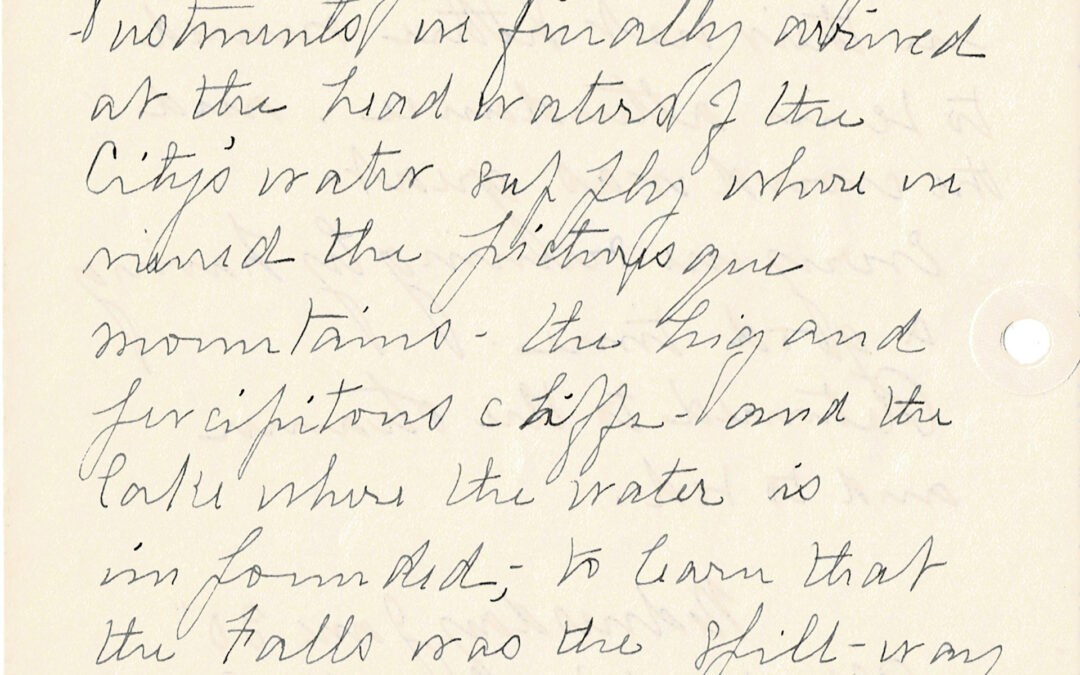 we finally arrived
at the head waters of the
City's water supply where we
viewed the picturesque
mountains - the hig and
percipitous cliffs - and the
lake where the water is
impounded; - to learn that
the Falls was the spill-way